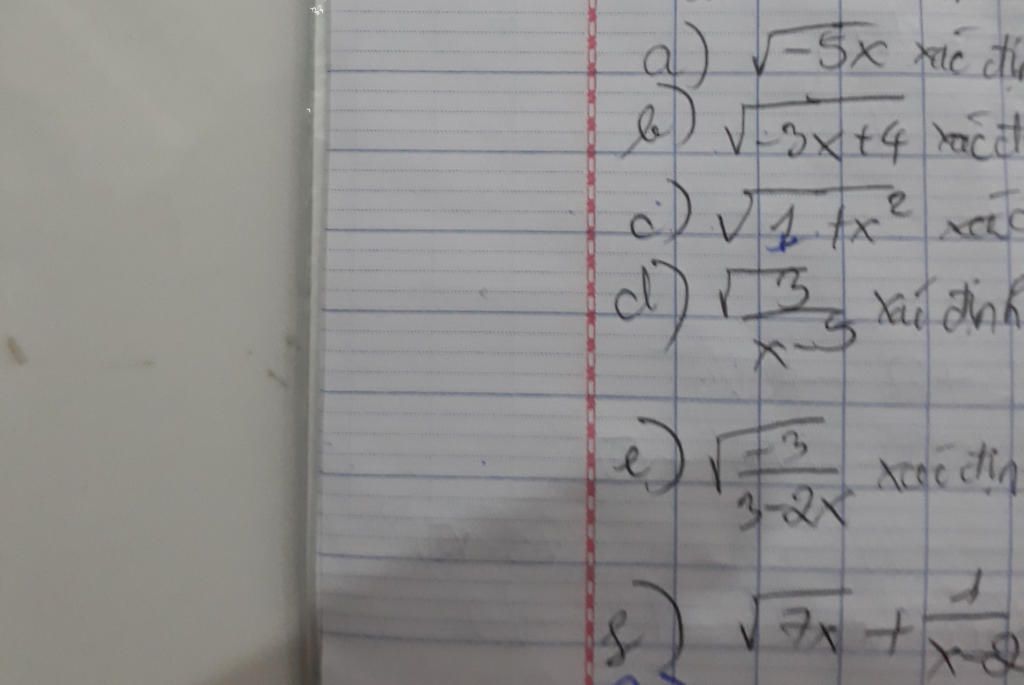 a) √-5x xác địn
b) √-3x+4 xác đ
c) √1+x² xác
d) √3/(x-5) xác định
e) √-3/(3-2x) xác địn
f) √7x + 1/(x-2)